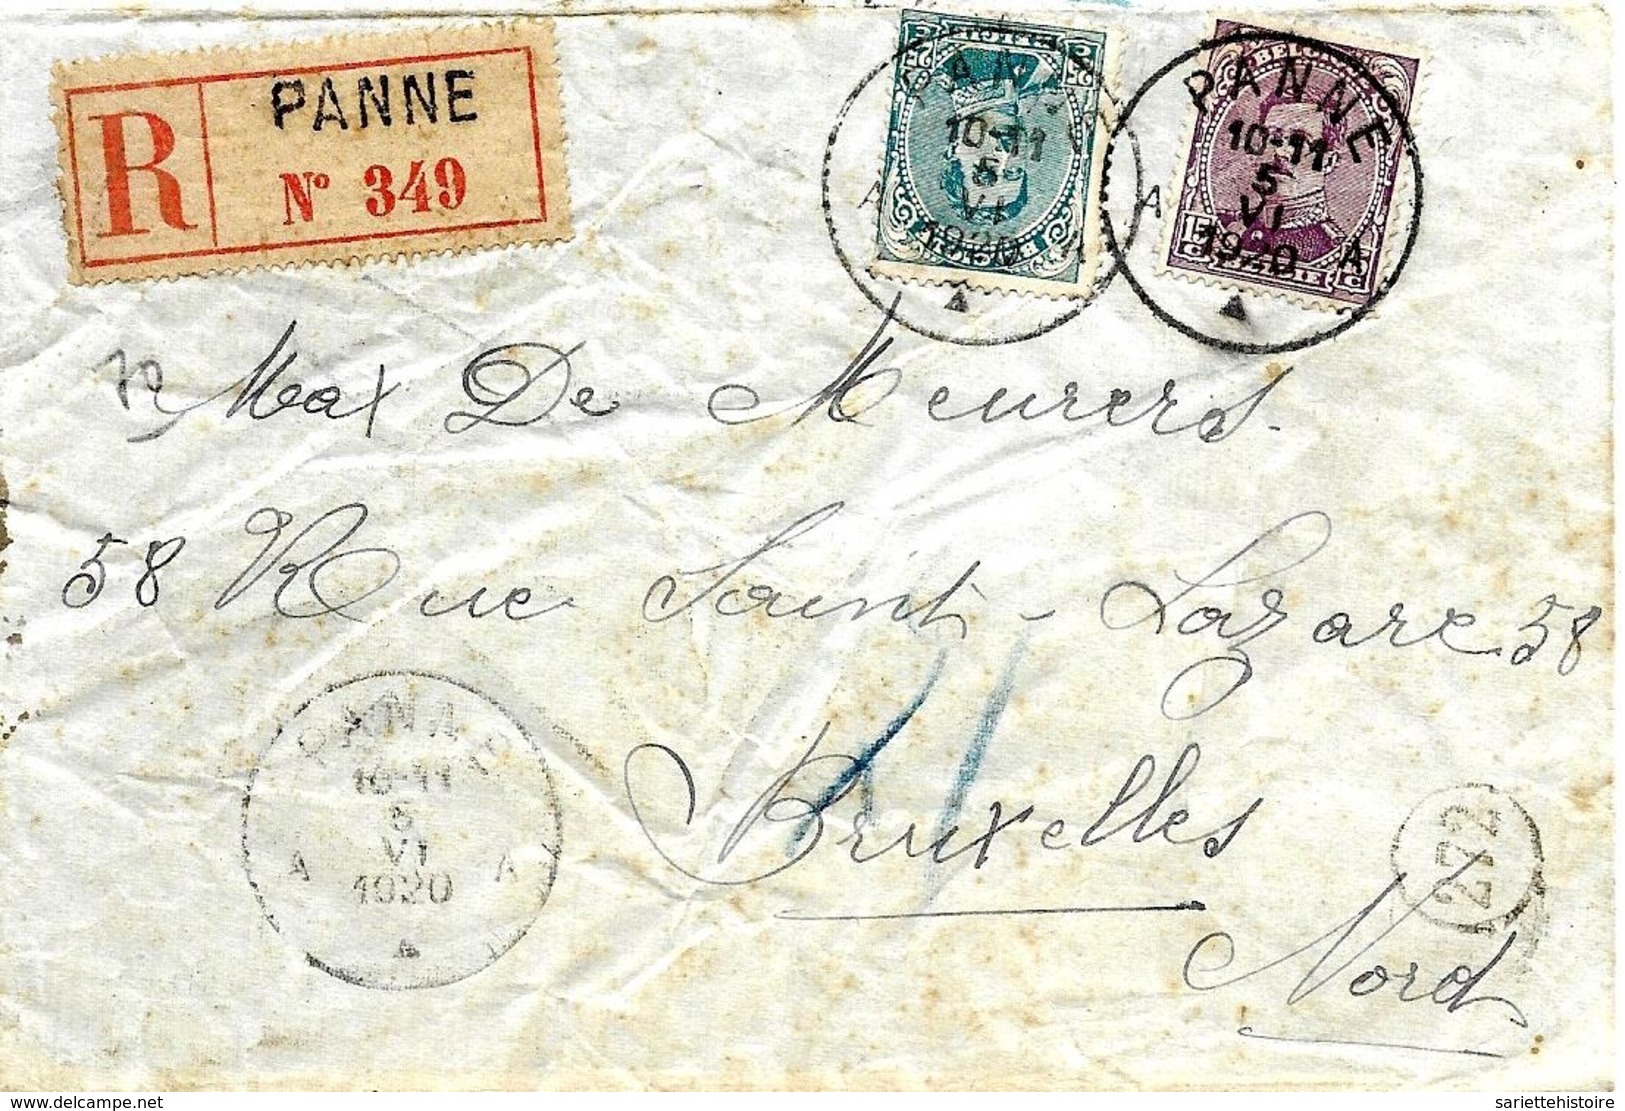 R PANNE
Nº 349
PANNE
10-11
5
VI
1920
A A
BELGIQUE
PANNE
10-11
5
VI
1920
A A
15 C
BELGIE
Max De Meurers.
58 Rue Saint-Lazare 58
Bruxelles
Nord
PANNE
10-11
5
VI
1920
A A
272
www.delcampe.net
sariettehistoire